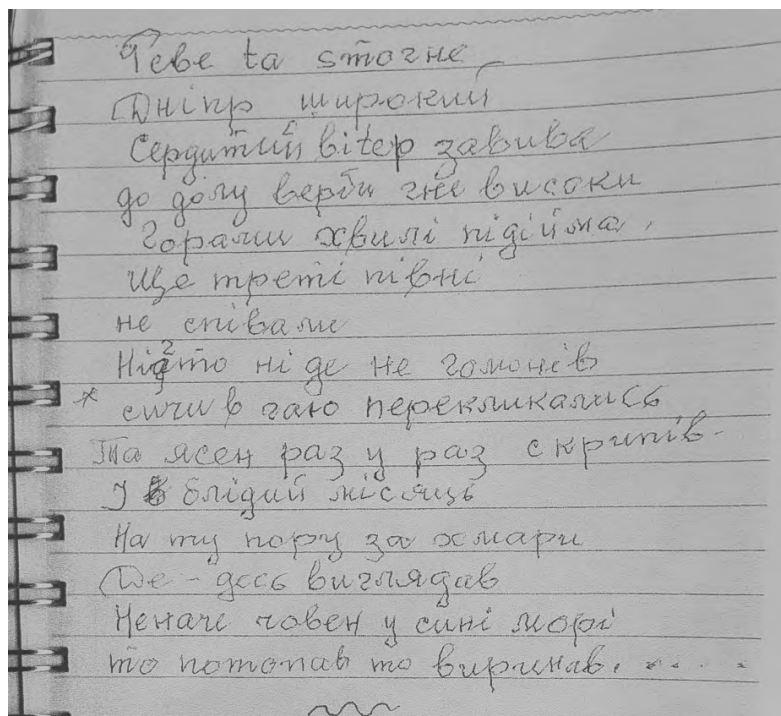 Реве та стогне
Дніпр широкий
Сердитий вітер завива
до долу верби гне високи
Горами хвилі підійма.
Ще треті півні
не співали
Ніхто ні де не гомонів
* сичи в гаю перекликались
Та ясен раз у раз скрипів.
І блідий місяць
На ту пору за хмари
Де-десь виглядав
Неначе човен у сині морі
то потопав то виринав.....